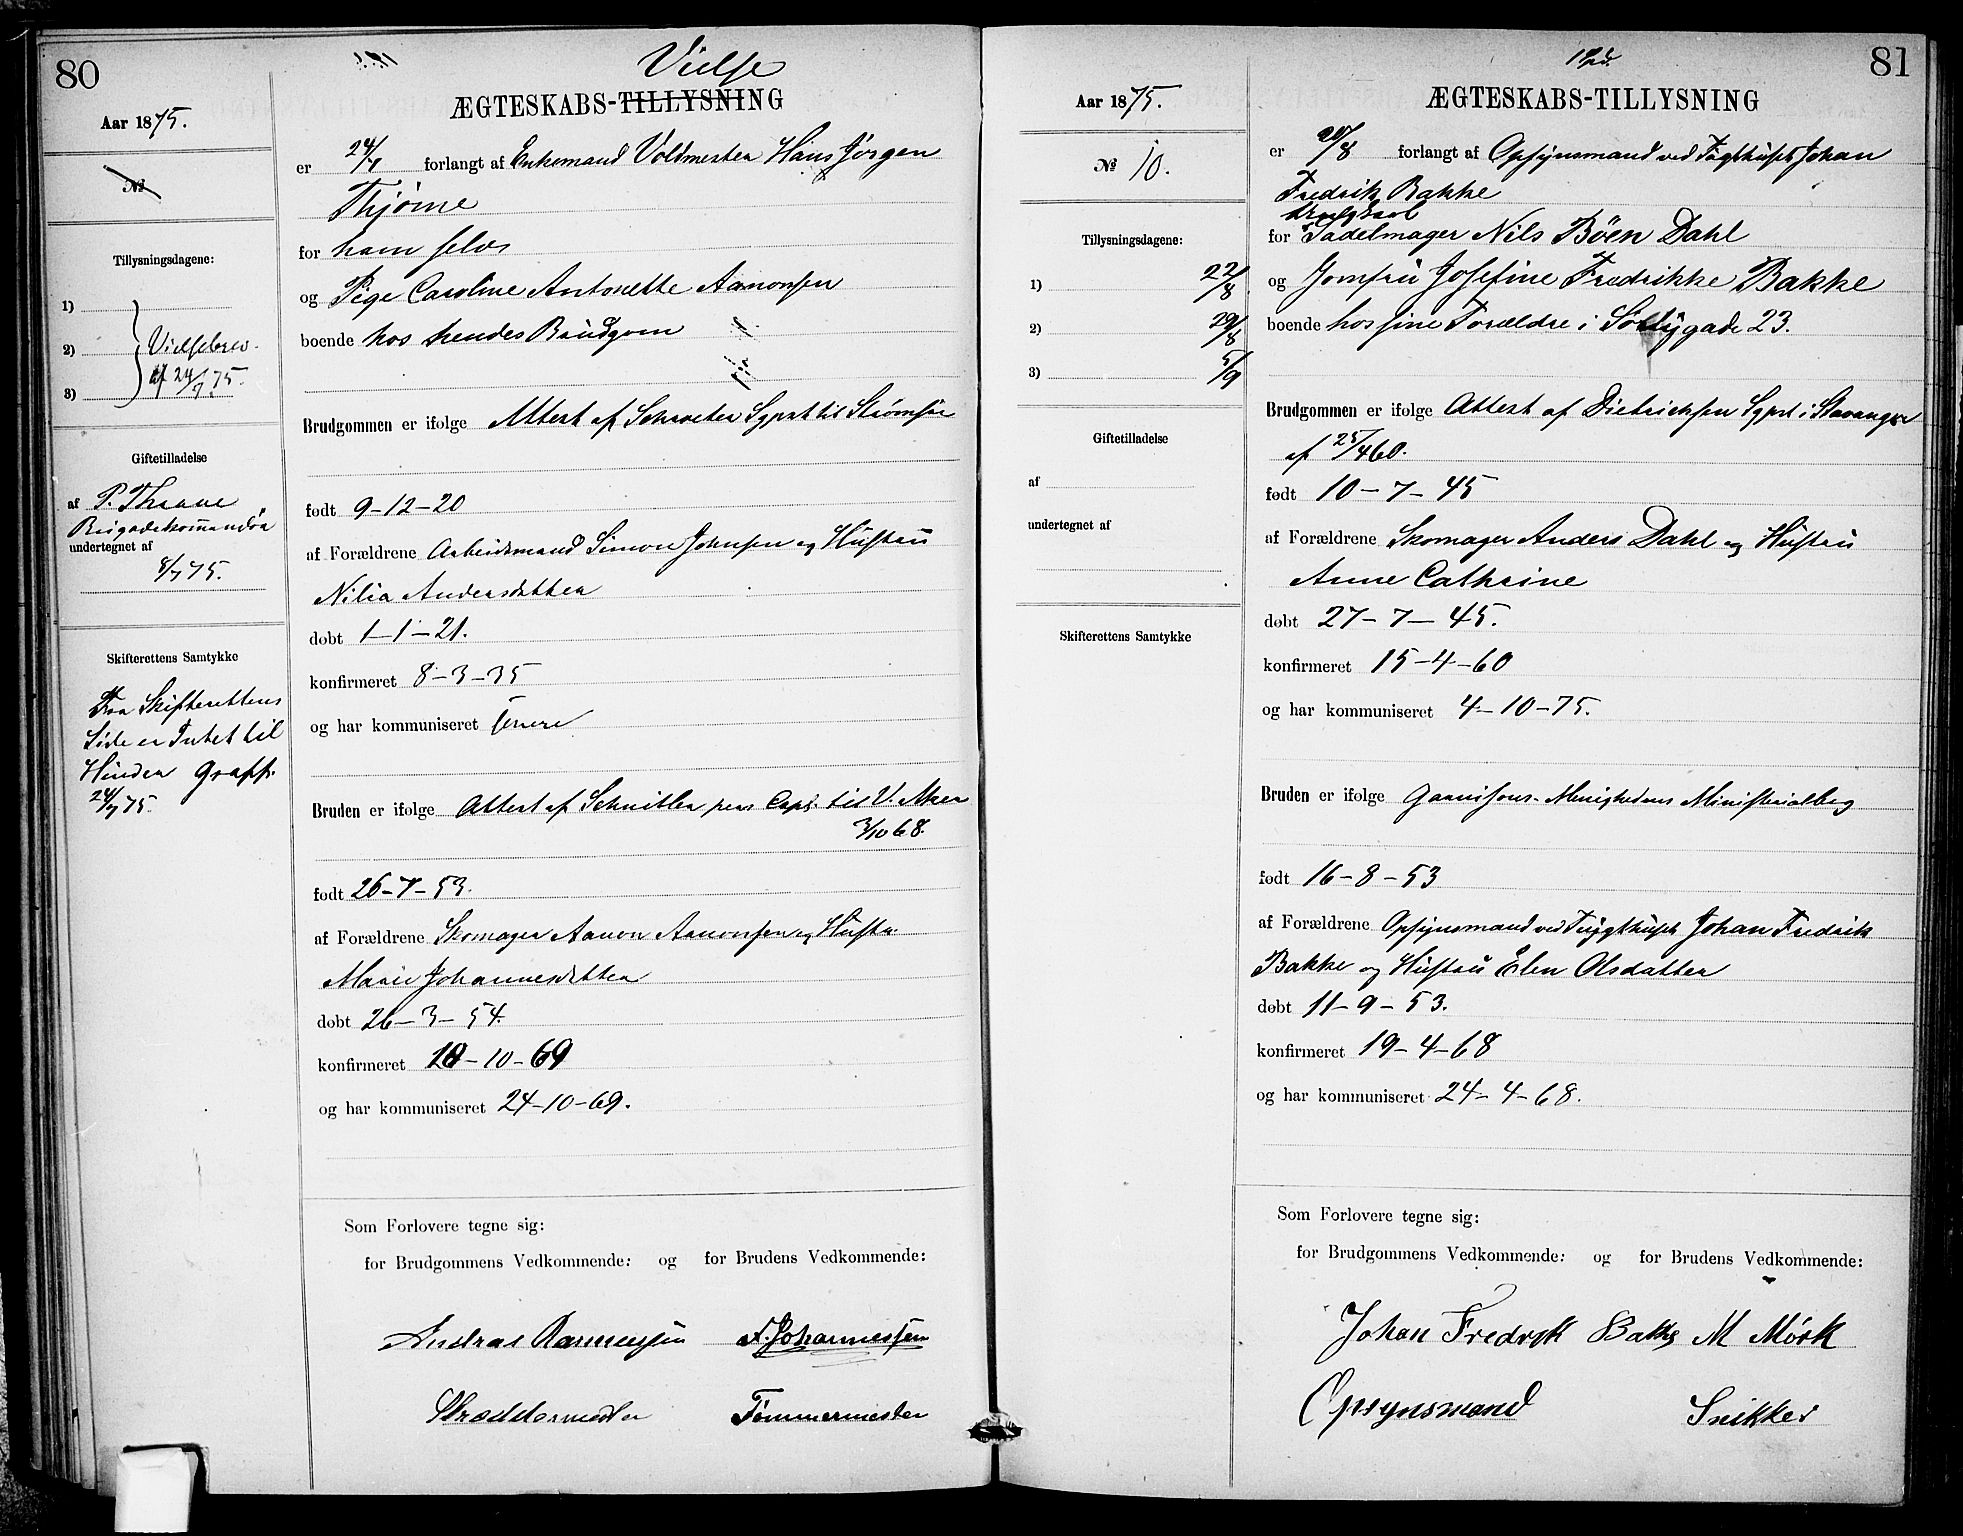 80
Vielse
ÆGTESKABS-TILLYSNING
Aar 1875.
er 24/7 forlangt af Enkemand Voldmester Hans Jørgen
No
Thjøme
for ham selv
Tillysningsdagene:
og Pige Caroline Antonette Aanonsen
1)
boende hos hendes Brudgom
2) Vielsebrev
af 24/7 75.
3)
Brudgommen er ifølge Attest af Schroeter Sgprst til Strømsø
Giftetilladelse
af P. Thrane
Brigadekommandør
undertegnet af
8/7 75.
født 9-12-20
af Forældrene Arbeidsmand Simon Johnsen og Hustru
Nilia Andersdatter
døbt 1-1-21.
Skifterettens Samtykke
konfirmeret 8-3-35
Fra Skifterettens
Side er Intet til
Hinder Graff.
24/7 75.
og har kommuniseret senere
Bruden er ifølge Attest af Schnitler pers Capl. til V. Aker
3/10 68.
født 26-7-53.
af Forældrene Skomager Aanon Aanonsen og Hustru
Marie Johannesdatter
døbt 26-3-54.
konfirmeret 10-10-69
og har kommuniseret 24-10-69.
Som Forlovere tegne sig:
for Brudgommens Vedkommende: og for Brudens Vedkommende:
Andreas Rasmussen A. Johannessen
Skræddermester Tømmermester
81
ÆGTESKABS-TILLYSNING
Aar 1875.
er 20/8 forlangt af Opsynsmand ved Tugthuset Johan
No 10.
Fredrik Bakke
for Ungkarl Sadelmager Nils Böen Dahl
Tillysningsdagene:
og Jomfru Josefine Fredrikke Bakke
1) 22/8
boende hos sine Forældre i Solligade 23.
2) 29/8
3) 5/9
Brudgommen er ifølge Attest af Dietrichsen Sgprst i Stavanger
af 25/4 60.
Giftetilladelse
af
født 10-7-45
undertegnet af
af Forældrene Skomager Anders Dahl og Hustru
Anne Cathrine
døbt 27-7-45.
Skifterettens Samtykke
konfirmeret 15-4-60
og har kommuniseret 4-10-75.
Bruden er ifølge Garnisons-Menighedens Ministerialbog
født 16-8-53
af Forældrene Opsynsmand ved Tugthuset Johan Fredrik
Bakke og Hustru Elen Olsdatter
døbt 11-9-53.
konfirmeret 19-4-68
og har kommuniseret 24-4-68.
Som Forlovere tegne sig:
for Brudgommens Vedkommende: og for Brudens Vedkommende:
Johan Fredrik Bakke M Mörk
Opsynsmand Snikker